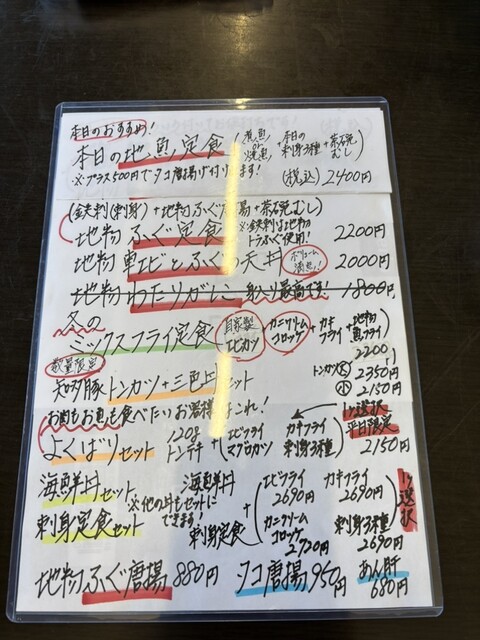 本日のおすすめ!
本日の地魚定食(煮魚or焼魚+本日の刺身3種+茶碗むし)
※プラス500円でタコ唐揚げ付けます! (税込)2400円
(鉄刺(刺身)+地物ふぐ唐揚+茶碗むし)
地物ふぐ定食 ※鉄刺は地物トラふぐ使用! 2200円
地物車エビとふぐの天丼 ボリューム満点!! 2000円
地物わたりがに 身入り最高です! 1800円
冬の
ミックスフライ定食(自家製エビカツ+カニクリームコロッケ+カキフライ+地物魚フライ)
2200円
数量限定
知多豚トンカツ+三色丼セット トンカツ 大 2350円
小 2150円
お肉もお魚も食べたいお客様はこれ!
よくばりセット 120gトンテキ+(エビフライ マグロカツ カキフライ 刺身3種) 1ヶ選択 平日限定
2150円
海鮮丼セット 海鮮丼
刺身定食セット ※他の丼もセットにできます! 刺身定食
+(エビフライ2690円 カキフライ2690円
カニクリームコロッケ2720円 刺身3種2690円) 1ヶ選択
地物ふぐ唐揚880円 タコ唐揚950円 あん肝680円